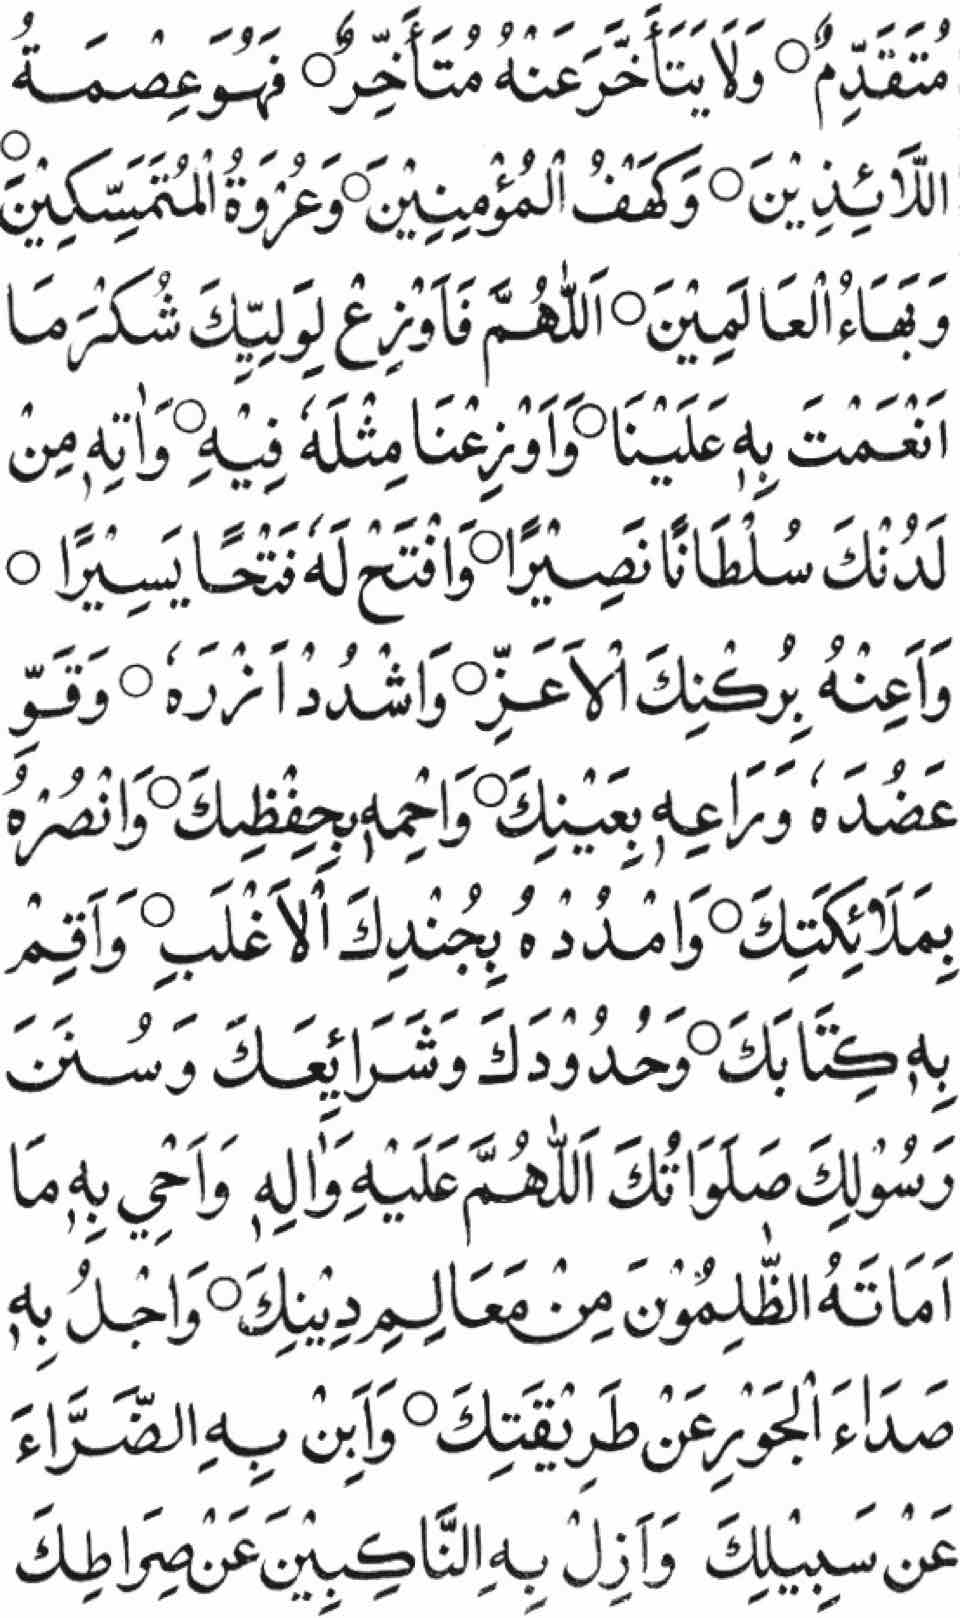 مُتَقَدِّمٌ○ وَلَا يَتَأَخَّرَ عَنْهُ مُتَأَخِّرٌ○ فَهُوَ عِصْمَةُ
اللَّائِذِيْنَ○ وَكَهَفُ الْمُؤْمِنِيْنَ○ وَعُرْوَةُ الْمُتَمَسِّكِيْنَ○
وَبَهَاءُ الْعَالَمِيْنَ○ اَللّٰهُمَّ فَاَوْزِعْ لِوَلِيِّكَ شُكْرَ مَا
اَنْعَمْتَ بِهٖ عَلَيْنَا○ وَاَوْزِعْنَا مِثْلَهٗ فِيْهِ○ وَاٰتِهٖ مِنْ
لَدُنْكَ سُلْطَانًا نَصِيْرًا○ وَافْتَحْ لَهٗ فَتْحًا يَسِيْرًا○
وَاَعِنْهُ بِرُكْنِكَ الْاَعَزِّ○ وَاشْدُدْ اَزْرَهٗ○ وَقَوِّ
عَضُدَهٗ وَرَاعِهٖ بِعَيْنِكَ○ وَاحْمِهٖ بِحِفْظِكَ○ وَانْصُرْهُ
بِمَلَائِكَتِكَ○ وَامْدُدْهُ بِجُنْدِكَ الْاَغْلَبِ○ وَاَقِمْ
بِهٖ كِتَابَكَ○ وَحُدُوْدَكَ وَشَرَائِعَكَ وَسُنَنَ
رَسُوْلِكَ صَلَوَاتُكَ اَللّٰهُمَّ عَلَيْهِ وَاٰلِهٖ وَاَحْيِ بِهٖ مَا
اَمَاتَهُ الظّٰلِمُوْنَ مِنْ مَعَالِمِ دِيْنِكَ○ وَاجْلُ بِهٖ
صَدَاءَ الْجَوْرِ عَنْ طَرِيْقَتِكَ○ وَاَبِنْ بِهِ الضَّرَّاءَ
عَنْ سَبِيْلِكَ وَاَزِلْ بِهِ النَّاكِبِيْنَ عَنْ صِرَاطِكَ